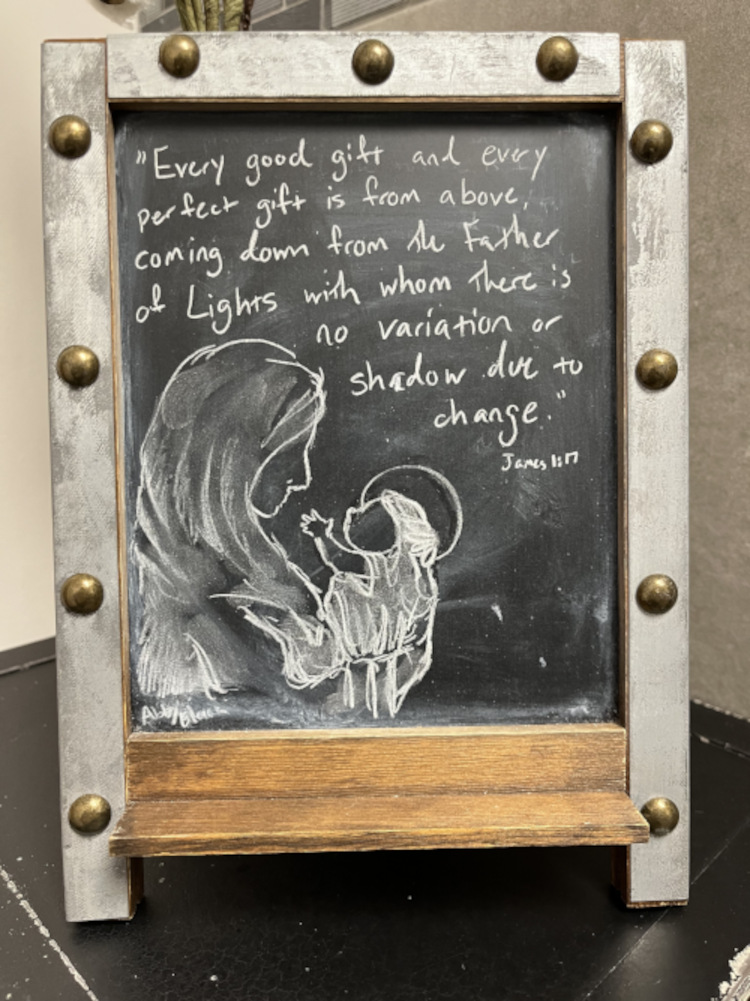 "Every good gift and every
perfect gift is from above,
coming down from the Father
of Lights with whom there is
no variation or
shadow due to
change."
James 1:17
Abby Black